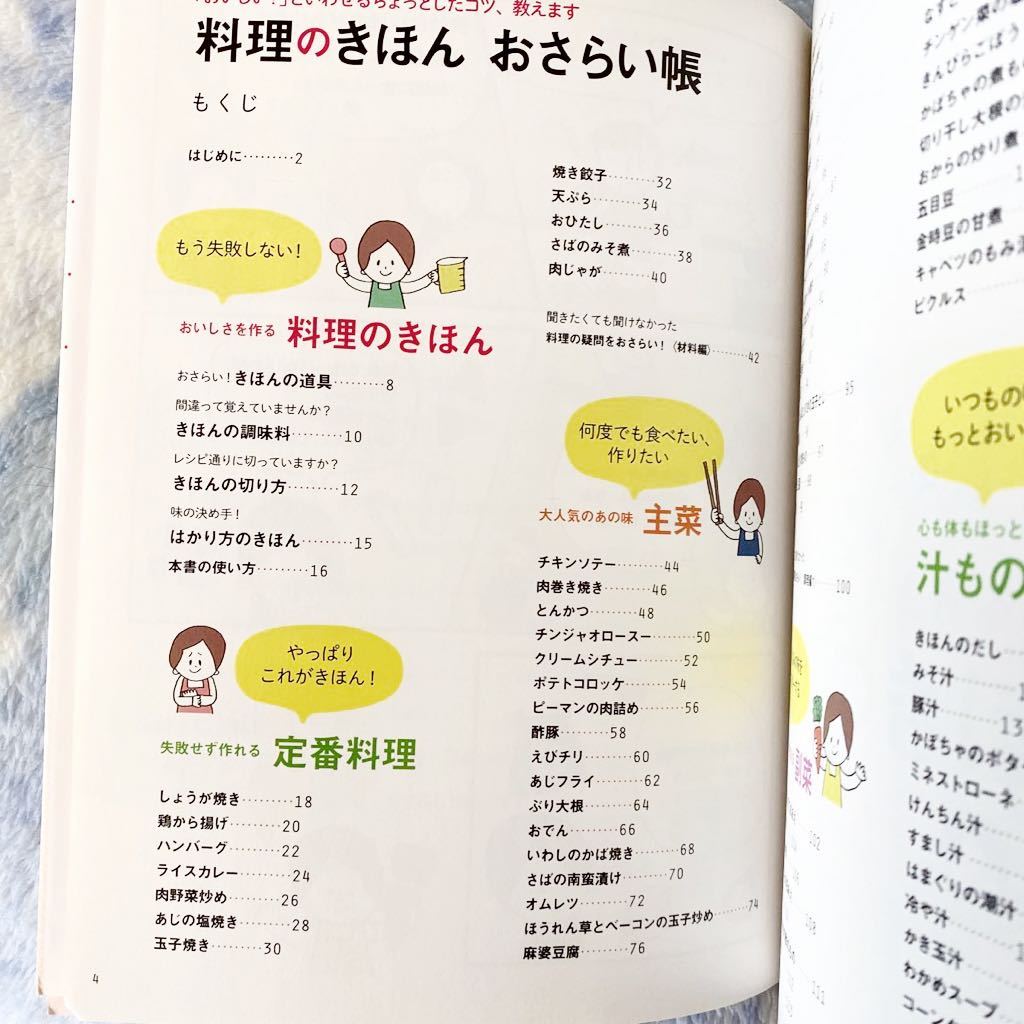 「おいしい!」といわせるちょっとしたコツ、教えます
料理のきほん おさらい帳
もくじ
はじめに………2
もう失敗しない!
おいしさを作る 料理のきほん
おさらい! きほんの道具………8
間違って覚えていませんか?
きほんの調味料………10
レシピ通りに切っていますか?
きほんの切り方………12
味の決め手!
はかり方のきほん………15
本書の使い方………16
やっぱり
これがきほん!
失敗せず作れる 定番料理
しょうが焼き………18
鶏から揚げ………20
ハンバーグ………22
ライスカレー………24
肉野菜炒め………26
あじの塩焼き………28
玉子焼き………30
4
焼き餃子………32
天ぷら………34
おひたし………36
さばのみそ煮………38
肉じゃが………40
聞きたくても聞けなかった
料理の疑問をおさらい!〈材料編〉………42
何度でも食べたい、
作りたい
大人気のあの味 主菜
チキンソテー………44
肉巻き焼き………46
とんかつ………48
チンジャオロースー………50
クリームシチュー………52
ポテトコロッケ………54
ピーマンの肉詰め………56
酢豚………58
えびチリ………60
あじフライ………62
ぶり大根………64
おでん………66
いわしのかば焼き………68
さばの南蛮漬け………70
オムレツ………72
ほうれん草とベーコンの玉子炒め………74
麻婆豆腐………76
95
97
100
副菜
102
108
111
チンゲン菜の
きんぴらごぼう
かぼちゃの煮も
切り干し大根の
おからの炒り煮
五目豆
金時豆の甘煮
キャベツのもみ
ピクルス
いつもの
もっとおい
心も体もほっと
汁もの
きほんのだし
みそ汁
豚汁
かぼちゃのポタ
ミネストローネ
けんちん汁
すまし汁
はまぐりの潮汁
冷や汁
かき玉汁
わかめスープ
コーン